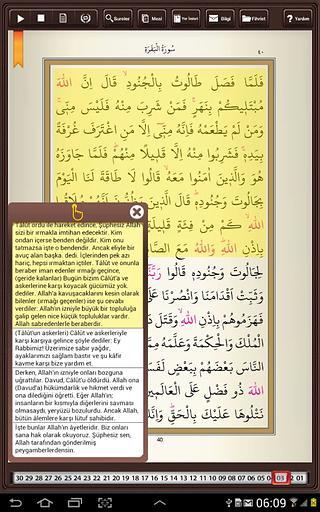 Sureler
Meal
Yer İmleri
Bilgi
Fihrist
Yardım
سُورَةُ الْبَقَرَةِ
٤٠
فَلَمَّا فَصَلَ طَالُوتُ بِالْجُنُودِ قَالَ اِنَّ اللّٰهَ
مُبْتَلِيكُمْ بِنَهَرٍ فَمَنْ شَرِبَ مِنْهُ فَلَيْسَ مِنّ۪ى
وَمَنْ لَمْ يَطْعَمْهُ فَاِنَّهُ مِنّ۪ى اِلَّا مَنِ اغْتَرَفَ غُرْفَةً
بِيَدِه۪ فَشَرِبُوا مِنْهُ اِلَّا قَل۪يلًا مِنْهُمْ فَلَمَّا جَاوَزَهُ
هُوَ وَالَّذ۪ينَ اٰمَنُوا مَعَهُ قَالُوا لَا طَاقَةَ لَنَا الْيَوْمَ
بِجَالُوتَ وَجُنُودِه۪ قَالَ الَّذ۪ينَ
اللّٰهِ كَمْ مِنْ فِئَةٍ قَل۪يلَةٍ
بِاِذْنِ اللّٰهِ وَاللّٰهُ مَعَ
لِجَالُوتَ وَجُنُودِه۪ قَالُوا رَبَّنَا
وَثَبِّتْ اَقْدَامَنَا وَانْصُرْنَا عَلَى
فَهَزَمُوهُمْ بِاِذْنِ اللّٰهِ وَقَتَلَ
الْمُلْكَ وَالْحِكْمَةَ وَعَلَّمَهُ
النَّاسَ بَعْضَهُمْ بِبَعْضٍ
اللّٰهَ ذُو فَضْلٍ عَلَى الْعَالَم۪ينَ
نَتْلُوهَا عَلَيْكَ بِالْحَقِّ وَاِنَّكَ
Tâlût ordu ile hareket edince, Şüphesiz Allah
sizi bir ırmakla imtihan edecektir. Kim
ondan içerse benden değildir. Kim onu
tatmazsa işte o bendendir. Ancak eliyle bir
avuç alan başka. dedi. İçlerinden pek azı
hariç, hepsi ırmaktan içtiler. Tâlût ve onunla
beraber iman edenler ırmağı geçince,
(geride kalanlar) Bugün bizim Câlût'a ve
askerlerine karşı koyacak gücümüz yok
dediler. Allah'a kavuşacaklarını kesin olarak
bilenler (ırmağı geçenler) ise şu cevabı
verdiler: Allah'ın izniyle büyük bir topluluğa
galip gelen nice küçük topluluklar vardır.
Allah sabredenlerle beraberdir.
(Tâlût'un askerleri) Câlût ve askerleriyle
karşı karşıya gelince şöyle dediler: Ey
Rabbimiz! Üzerimize sabır yağdır,
ayaklarımızı sağlam bastır ve şu kâfir
kavme karşı bize yardım et.
Derken, Allah'ın izniyle onları bozguna
uğrattılar. Davud, Câlût'u öldürdü. Allah ona
(Davud'a) hükümdarlık ve hikmet verdi ve
ona dilediğini öğretti. Eğer Allah'ın;
insanların bir kısmıyla diğerlerini savması
olmasaydı, yeryüzü bozulurdu. Ancak Allah,
bütün âlemlere karşı lütuf sahibidir.
İşte bunlar Allah'ın âyetleridir. Biz onları
sana hak olarak okuyoruz. Şüphesiz sen,
Allah tarafından gönderilmiş
peygamberlerdensin.
40
30 29 28 27 26 25 24 23 22 21 20 19 18 17 16 15 14 13 12 11 10 09 08 07 06 05 0 03 2 01
06:09